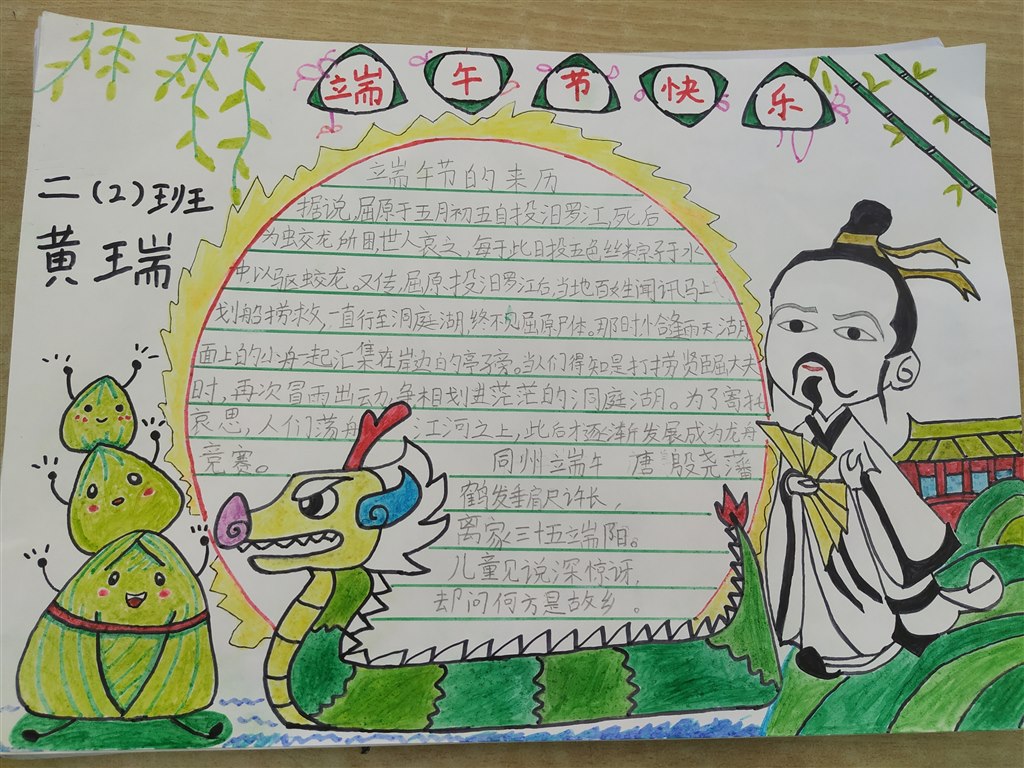 端午节快乐
二(2)班
黄瑞
端午节的来历
据说,屈原于五月初五自投汨罗江,死后
为蛟龙所困世人哀之,每于此日投五色丝粽子于水
中以驱蛟龙。又传,屈原投汨罗江后,当地百姓闻讯马上
划船捞救,一直行至洞庭湖,终不见屈原尸体。那时恰逢雨天湖
面上的小舟一起汇集在岸边的亭子旁。当人们得知是打捞贤臣屈大夫
时,再次冒雨出动争相划进茫茫的洞庭湖。为了寄托
哀思,人们荡舟江河之上,此后才逐渐发展成为龙舟
竞赛。
同州端午 唐 殷尧藩
鹤发垂肩尺许长,
离家三十五端阳。
儿童见说深惊讶,
却问何方是故乡。